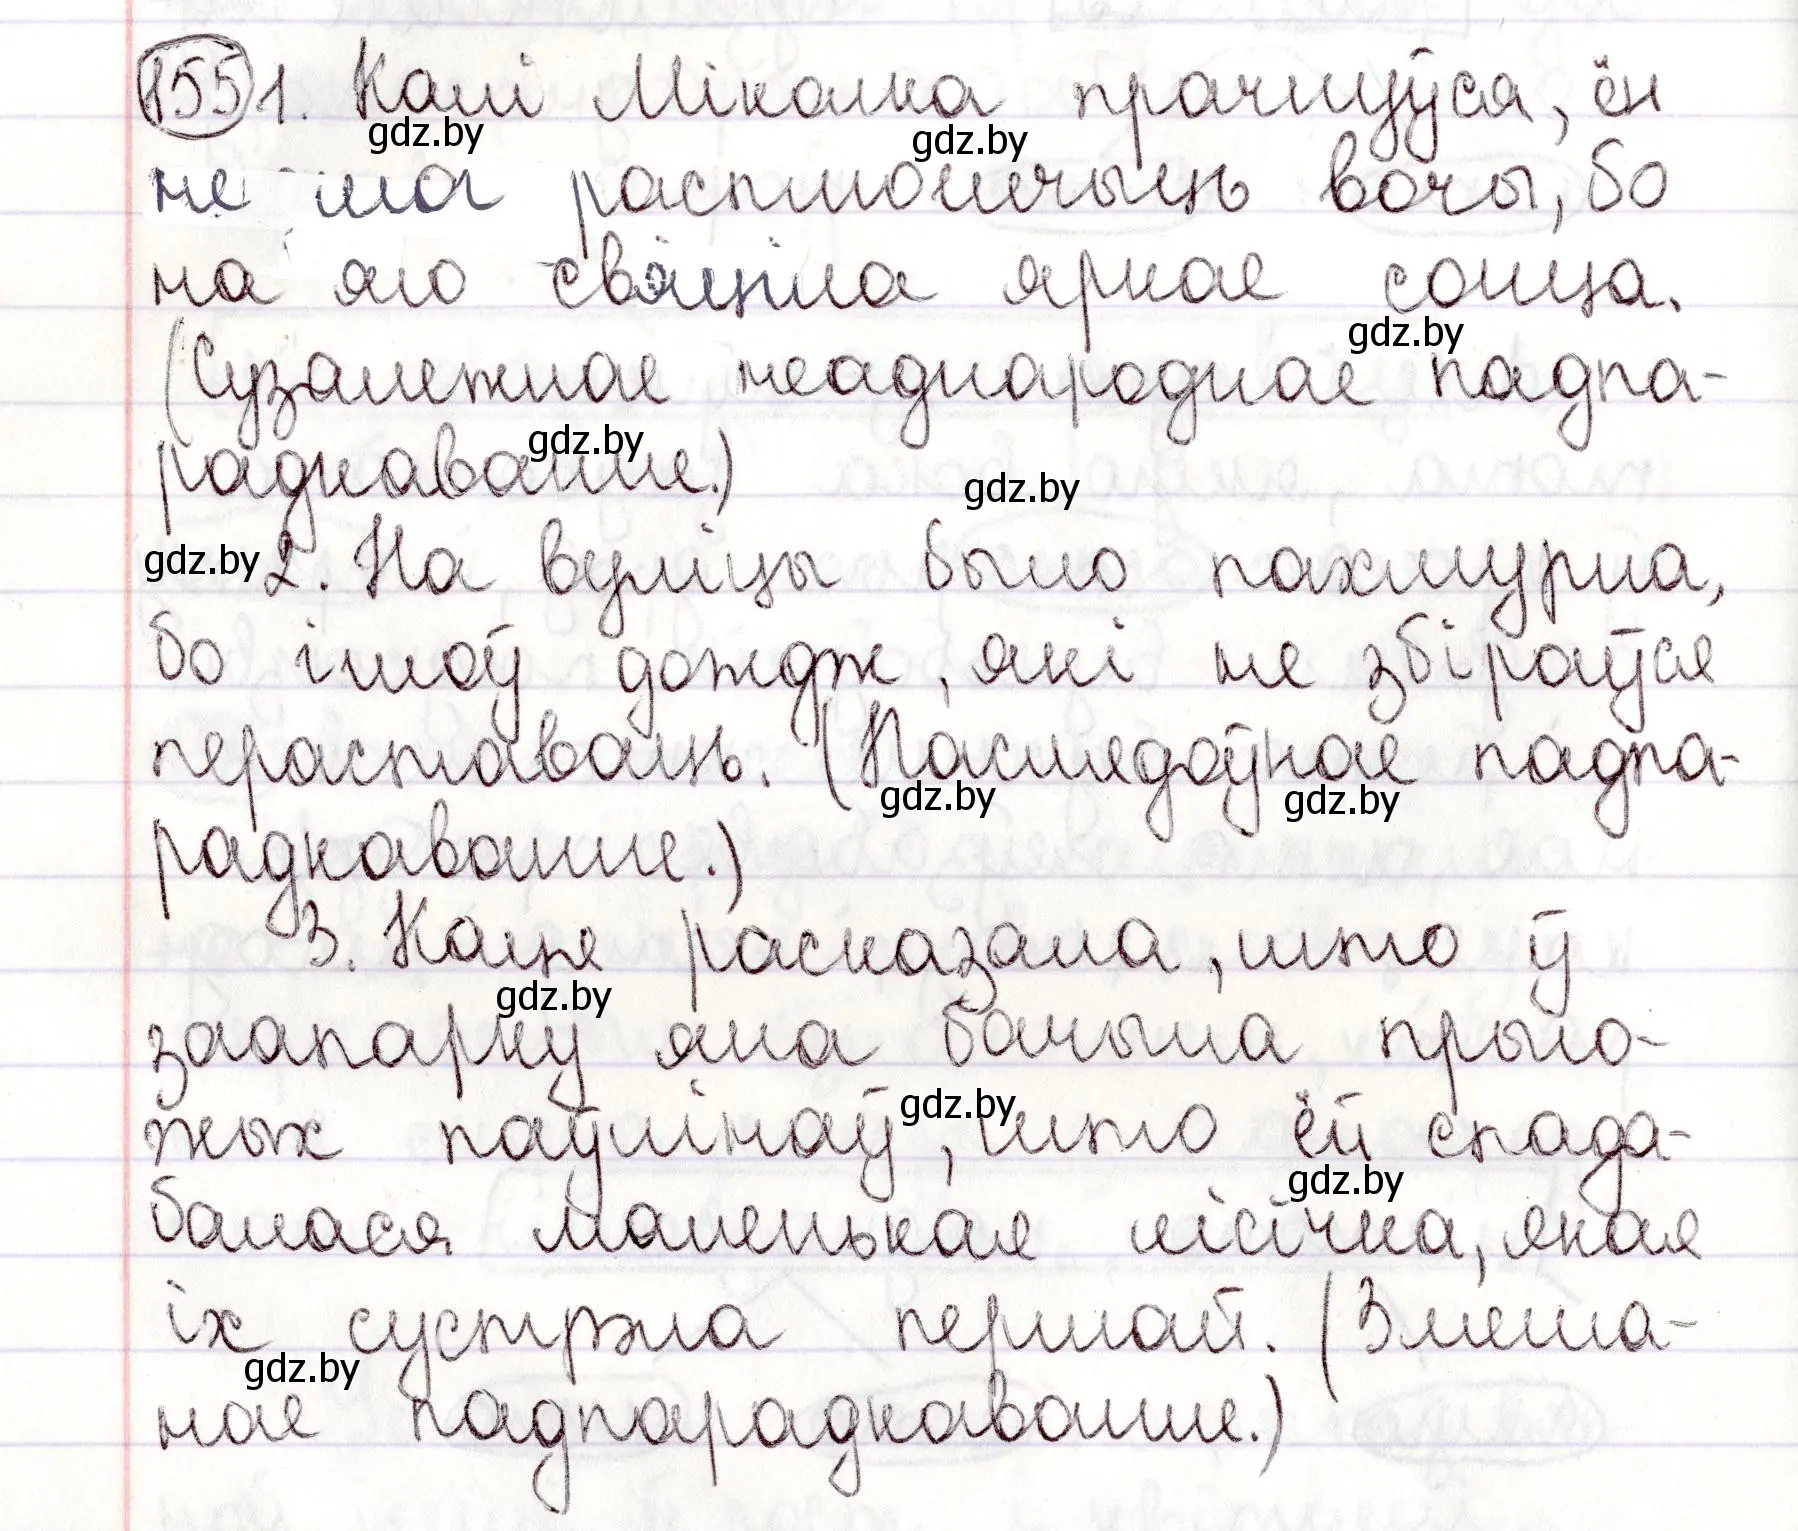 155 1. Калі Міколка прачнуўся, ён
gdz.by gdz.by
не мог расплюшчыць вочы, бо
на яго свяціла яркае сонца.
gdz.by
(Сузалежнае неаднароднае падпа-
gdz.by
радкаванне.)
gdz.by
gdz.by 2. На вуліцы было пахмурна,
бо ішоў дождж, які не збіраўся
пераставаць. (Паслядоўнае падпа-
gdz.by gdz.by
радкаванне.)
3. Каця расказала, што ў
gdz.by
заапарку яна бачыла прыго-
gdz.by
жых паўлінаў, што ёй спада-
gdz.by
балася маленькая лісічка, якая
іх сустрэла першай. (Змеша-
gdz.by
нае падпарадкаванне.)